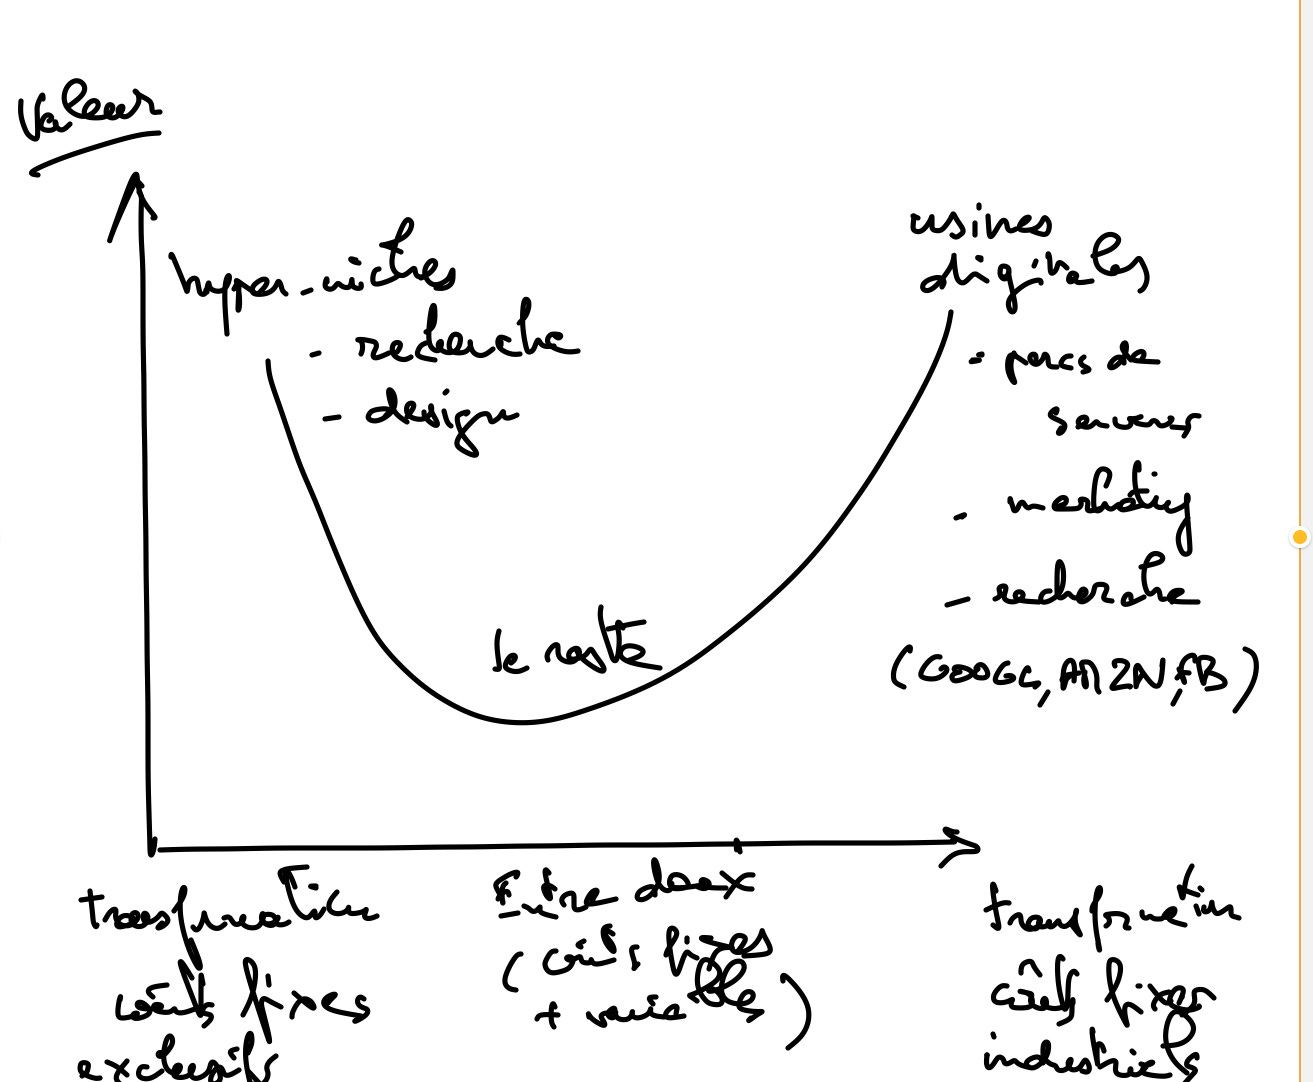 Valeur
hyper-niches
- recherche
- design
usines
digitales
- parcs de
serveurs
- marketing
- recherche
(GOOGL, AMZN, FB)
le reste
transformation
coûts fixes
exclusifs
Entre deux
(coûts fixes
+ variables)
transformation
coûts fixes
industriels